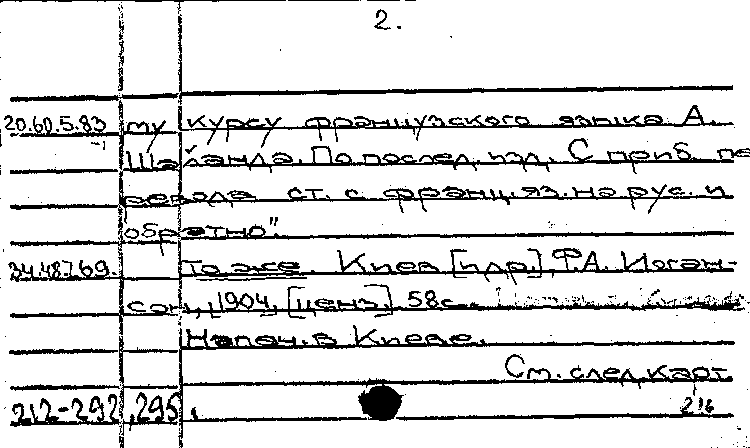 2.
20.60.5.83 му курсу французского языка А.
Шайланда. По послед. изд. С приб. пе
ревода ст. с франц. яз. на рус. и
обратно".
34.48.7.69. То же. Киев [изд.], Ф.А. Иоган-
сон, 1904, [ценз.] 58 с.
Напеч. в Киеве.
См. след. карт
212-292, 295. 216